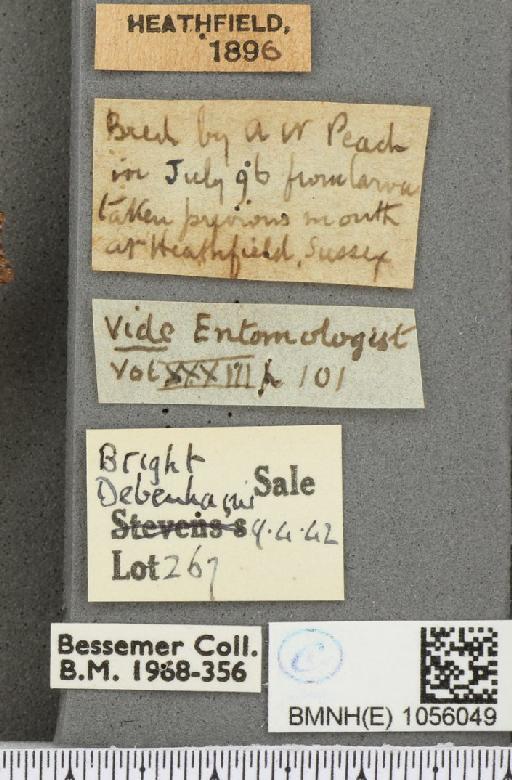 HEATHFIELD,
1896
Bred by A W Peach
in July 96 from larva
taken previous month
at Heathfield, Sussex
Vide Entomologist
Vol XXXIII p 101
Bright
Debenham's Sale
Stevens's 9.4.42
Lot 267
Bessemer Coll.
B.M. 1968-356
C
BMNH(E) 1056049